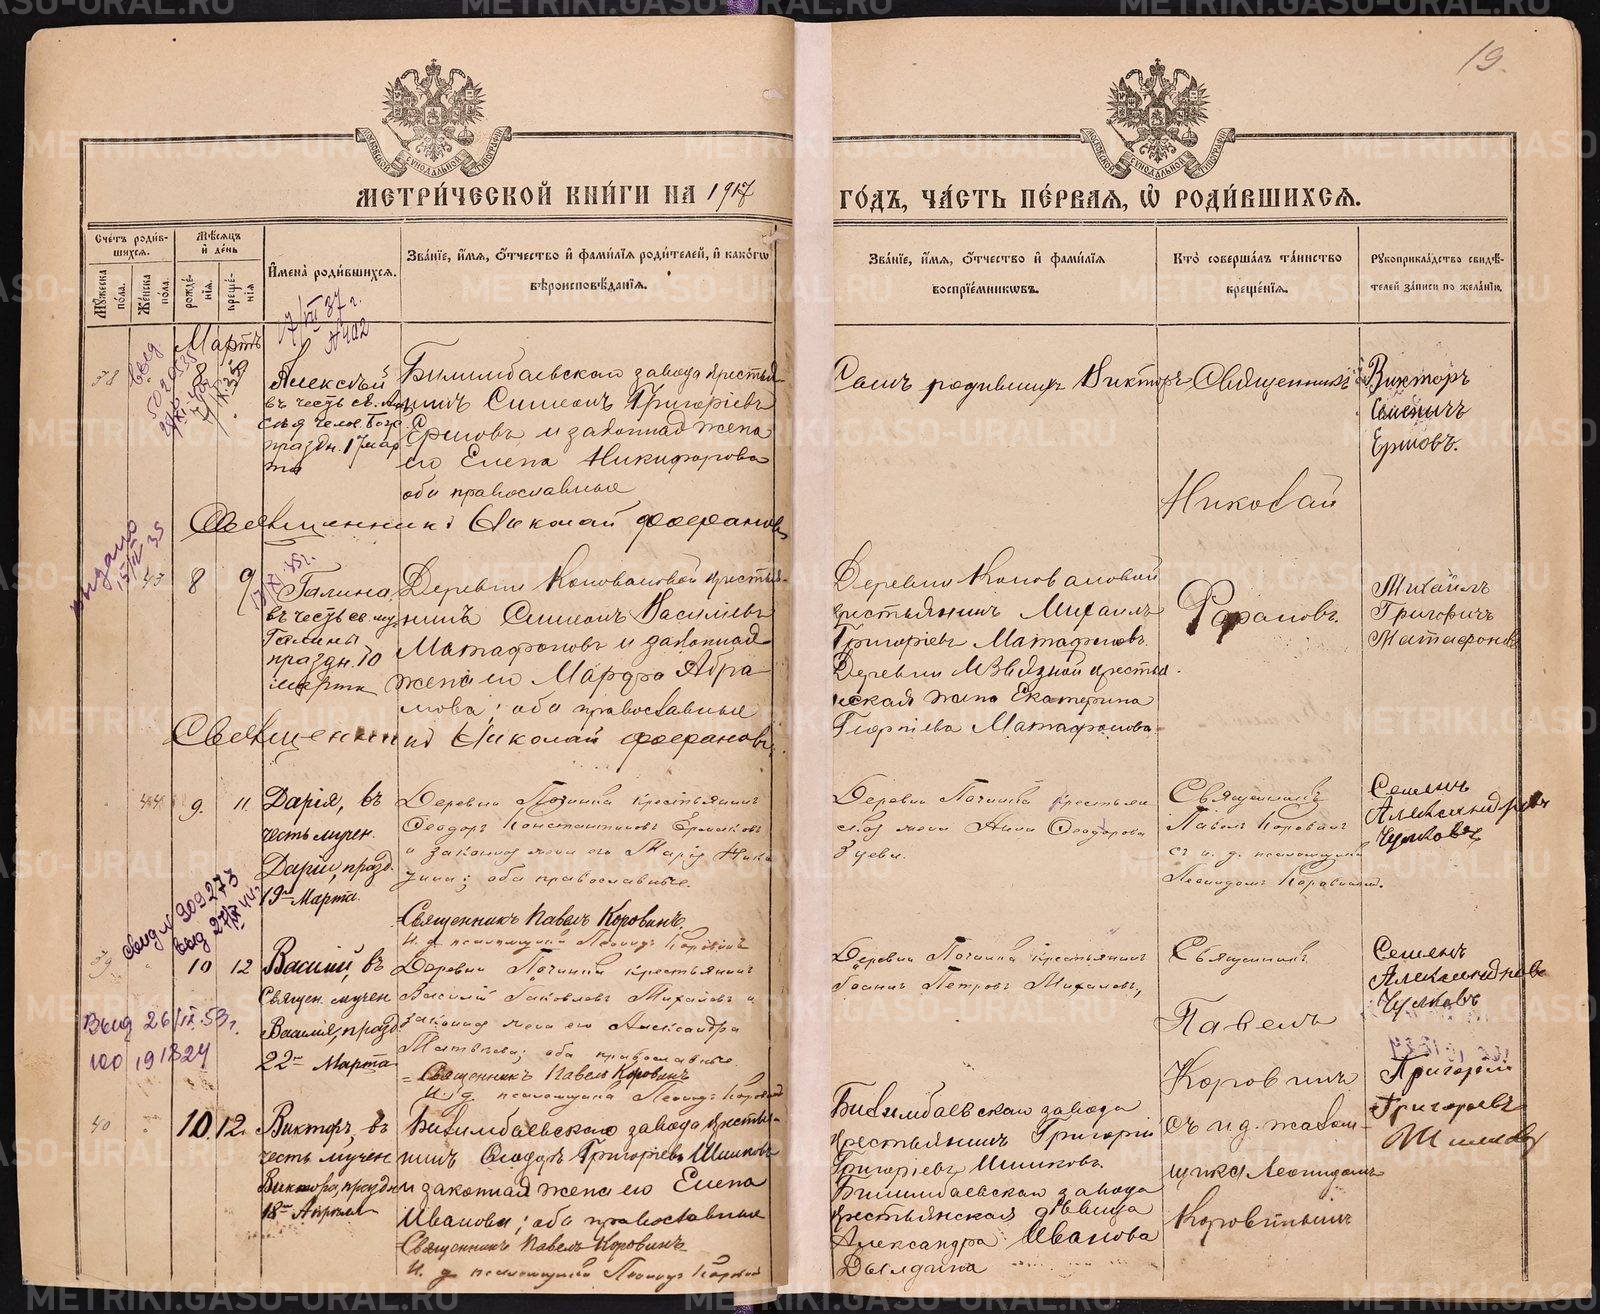 19.
МОСКОВСКОЙ СѴНОДАЛЬНОЙ ТИПОГРАФІИ
МОСКОВСКОЙ СѴНОДАЛЬНОЙ ТИПОГРАФІИ
МЕТРИ́ЧЕСКОЙ КНИ́ГИ НА 1917
ГО́ДЪ, ЧА́СТЬ ПЕ́РВАЯ, Ѡ РОДИ́ВШИХСЯ.
Сче́тъ роди́в-
шихся.
Му́жеска по́ла.
Же́нска по́ла.
Мѣ́сяцъ
и де́нь
рожде́нія.
креще́нія
Имена̀ роди́вшихся.
Зва́ніе, и́мя, о́тчество и фами́лія роди́телей, и како́гѡ
вѣроисповѣ́данія.
Зва́ніе, и́мя, о́тчество и фами́лія
воспріе́мникѡвъ.
Кто̀ соверша́лъ та́инство
креще́нія.
Рукоприкла́дство свидѣ́-
телей за́писи по жела́нію.
17/VII 37 г.
N 402
Мартъ
38 8 9
Алексѣй
въ честь св. Але
ксѣя челов. Бож
праздн. 17 мар
та
Билимбаевскаго завода крестья
нинъ Симеонъ Григоріевъ
Ершовъ и законная жена
его Елена Никифорова
оба православные
Священникъ Николай Фаерановъ
Самъ родившихъ Викторъ
Священникъ
Николай
Викторъ
Семеничъ
Ершовъ.
выдано
15/IV 35
43 8 9
Галина
въ честь св. му
Галины
праздн. 10
марта
Деревни Коноваловой крестья-
нинъ Симеонъ Василіевъ
Матафоновъ и законная
жена его Марфа Абра
мова; оба православные
Священникъ Николай Фаерановъ
Деревни Коноваловой
крестьянинъ Михаилъ
Григоріевъ Матафоновъ
крестья
нская жена Екатерина
Георгіева Матафонова
Михаилъ
Григоричъ
Матафоновъ
44 9. 11.
Дарія, въ
честь мучен.
Даріи, празд.
19го Марта.
Деревни Починка крестьянинъ
Ѳеодоръ Константиновъ Ермаковъ
и законная жена его Марія
оба православные.
Священникъ Павелъ Коровинъ.
И. д. псаломщика Леонидъ Коровинъ
Деревни Починка крестьян
ская жена Анна Ѳеодорова
Зуева.
Священникъ
Павелъ Коровинъ
съ и. д. псаломщика
Леонидомъ Коровинымъ.
Семенъ
Александровъ
Чулковъ
свид N 909273
39 10 12
Василій, въ
Священ. мучен
Василія, празд
22го Марта
Деревни Починка крестьянинъ
Василій Яковлевъ Михалевъ и
законная жена его Александра
Матвѣева; оба православные
Священникъ Павелъ Коровинъ
И. д. псаломщика Леонидъ Коровинъ
Деревни Починка крестьянинъ
Іоаннъ Петровъ Михалевъ,
Священникъ
Павелъ
Коровинъ
Семенъ
Чулковъ
Выд 26/IX. 53 г.
100 191824
40 10. 12.
Викторъ, въ
честь мучен
Виктора, праздн
18го Апрѣля
Билимбаевскаго завода крестья-
нинъ Ѳеодоръ Григоріевъ Шишковъ
и законная жена его Елена
Иванова; оба православные
Священникъ Павелъ Коровинъ
И. д. псаломщика Леонидъ Коровинъ
Билимбаевскаго завода
крестьянинъ Григорій
Григоріевъ Шишковъ.
Билимбаевскаго завода
крестьянская дѣвица
Александра Иванова
Дылдина
съ и. д. псалом-
щика Леонидомъ
Коровинымъ
Григорій
Григорьевъ
Шишковъ
METRIKI.GASO-URAL.RU